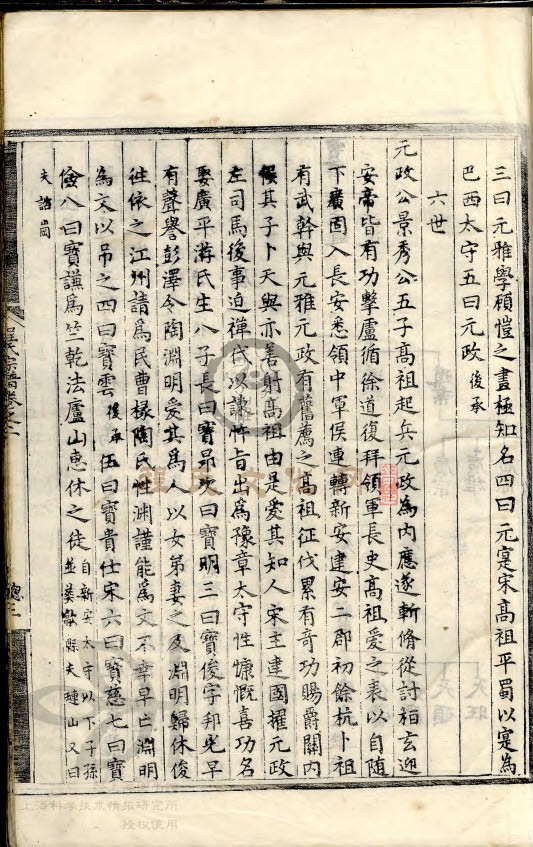 三曰元雅學顧愷之畫極知名四曰元寔宋高祖平蜀以寔為
巴西太守五曰元政後承
六世
元政公景秀公五子高祖起兵元政為內應遂斬脩從討桓玄迎
安帝皆有功擊盧循徐道復拜領軍長史高祖愛之表以自隨
下廣固入長安悉領中軍俁連轉新安建安二郡初餘杭卜祖
有武幹與元雅元政有舊薦之高祖征伐累有奇功賜爵關內
侯其子卜天與亦善射高祖由是愛其知人宋主建國擢元政
左司馬後事迫禪代以諫忤旨出為豫章太守性慷慨喜功名
娶廣平游氏生八子長曰寶昂次曰寶明三曰寶俊字邦光早
有聲譽彭澤令陶淵明愛其為人以女弟妻之及淵明歸休俊
往依之江州請為民曹椽陶氏性淵謹能為文不幸早亡淵明
為文以吊之四曰寶雲後承伍曰寶貴仕宋六曰寶慈七曰寶
儉八曰寶謙為竺乾法廬山惠休之徒自新安太守以下子孫並葬歙縣夫璉山又曰
夫譜崗
宗譜卷之
總二
上海科学技术情报研究所
授权使用